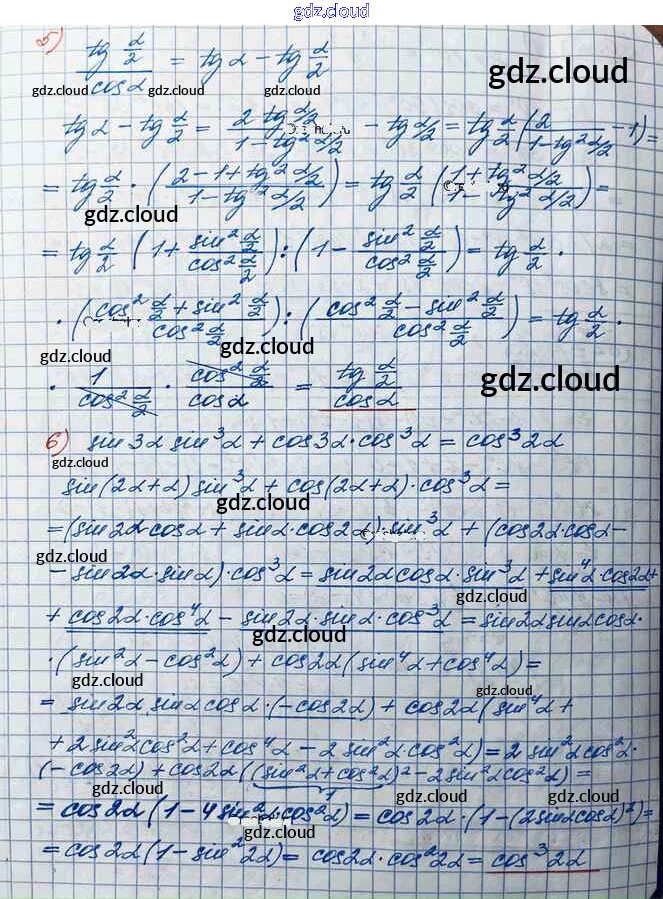 gdz.cloud
5) tg α/2 / cos α = tg α − tg α/2
gdz.cloud
gdz.cloud gdz.cloud
tg α − tg α/2 = 2 tg α/2 / 1 − tg² α/2 − tg α/2 = tg α/2 (2 / 1 − tg² α/2 − 1) =
= tg α/2 · (2 − 1 + tg² α/2 / 1 − tg² α/2) = tg α/2 (1 + tg² α/2 / 1 − tg² α/2) =
gdz.cloud
= tg α/2 (1 + sin² α/2 / cos² α/2) : (1 − sin² α/2 / cos² α/2) = tg α/2 ·
· (cos² α/2 + sin² α/2 / cos² α/2) : (cos² α/2 − sin² α/2 / cos² α/2) = tg α/2 ·
gdz.cloud
· 1 / cos² α/2 · cos² α/2 / cos α = tg α/2 / cos α
gdz.cloud
6) sin 3α sin³ α + cos 3α · cos³ α = cos³ 2α
gdz.cloud
sin (2α + α) sin³ α + cos (2α + α) · cos³ α =
gdz.cloud
= (sin 2α cos α + sin α · cos 2α) · sin³ α + (cos 2α · cos α −
gdz.cloud
− sin 2α · sin α) · cos³ α = sin 2α cos α · sin³ α + sin⁴ α · cos 2α +
gdz.cloud
+ cos 2α · cos⁴ α − sin 2α · sin α · cos³ α = sin 2α sin α cos α ·
gdz.cloud
· (sin² α − cos² α) + cos 2α (sin⁴ α + cos⁴ α) =
gdz.cloud
gdz.cloud
= sin 2α sin α cos α · (− cos 2α) + cos 2α (sin⁴ α +
+ 2 sin² α cos² α + cos⁴ α − 2 sin² α · cos² α) = 2 sin² α cos² α ·
(− cos 2α) + cos 2α ((sin² α + cos² α)² − 2 sin² α cos² α) =
1
gdz.cloud gdz.cloud gdz.cloud
= cos 2α (1 − 4 sin² α cos² α) = cos 2α · (1 − (2 sin α cos α)²) =
= cos 2α (1 − sin² 2α) = cos 2α · cos² 2α = cos³ 2α
gdz.cloud gdz.cloud